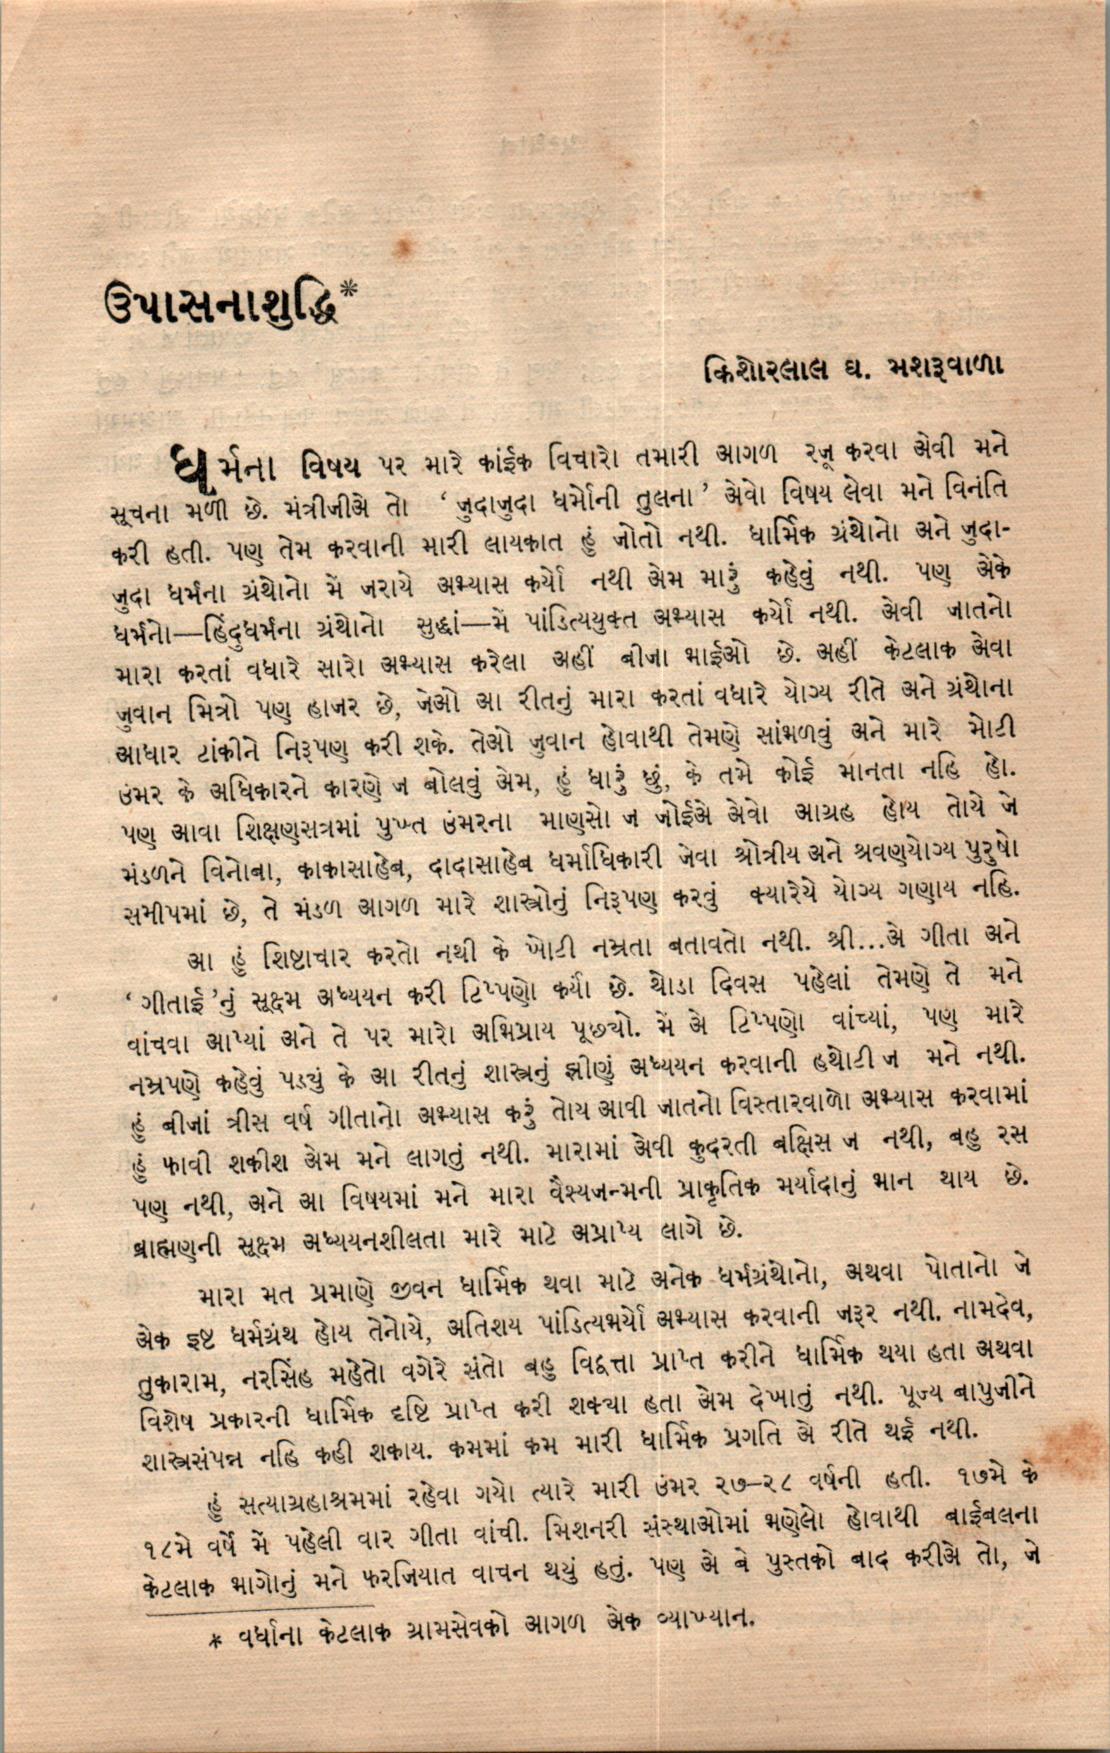 ઉપાસનાશુદ્ધિ*
કિશોરલાલ ઘ. મશરૂવાળા
ધર્મના વિષય પર મારે કાંઈક વિચારો તમારી આગળ રજૂ કરવા એવી મને
સૂચના મળી છે. મંત્રીજીએ તો ‘જુદાજુદા ધર્મોની તુલના’ એવો વિષય લેવા મને વિનંતિ
કરી હતી. પણ તેમ કરવાની મારી લાયકાત હું જોતો નથી. ધાર્મિક ગ્રંથોનો અને જુદા-
જુદા ધર્મના ગ્રંથોનો મેં જરાયે અભ્યાસ કર્યો નથી એમ મારું કહેવું નથી. પણ એકે
ધર્મનો—હિંદુધર્મના ગ્રંથોનો સુદ્ધાં—મેં પાંડિત્યયુક્ત અભ્યાસ કર્યો નથી. એવી જાતનો
મારા કરતાં વધારે સારો અભ્યાસ કરેલા અહીં બીજા ભાઈઓ છે. અહીં કેટલાક એવા
જુવાન મિત્રો પણ હાજર છે, જેઓ આ રીતનું મારા કરતાં વધારે યોગ્ય રીતે અને ગ્રંથોના
આધાર ટાંકીને નિરૂપણ કરી શકે. તેઓ જુવાન હોવાથી તેમણે સાંભળવું અને મારે મોટી
ઉંમર કે અધિકારને કારણે જ બોલવું એમ, હું ધારું છું, કે તમે કોઈ માનતા નહિ હો.
પણ આવા શિક્ષણસત્રમાં પુખ્ત ઉંમરના માણસો જ જોઈએ એવો આગ્રહ હોય તોયે જે
મંડળને વિનોબા, કાકાસાહેબ, દાદાસાહેબ ધર્માધિકારી જેવા શ્રોત્રીય અને શ્રવણયોગ્ય પુરુષો
સમીપમાં છે, તે મંડળ આગળ મારે શાસ્ત્રોનું નિરૂપણ કરવું ક્યારેયે યોગ્ય ગણાય નહિ.
આ હું શિષ્ટાચાર કરતો નથી કે ખોટી નમ્રતા બતાવતો નથી. શ્રી...એ ગીતા અને
‘ગીતાઈ’નું સૂક્ષ્મ અધ્યયન કરી ટિપ્પણો કર્યાં છે. થોડા દિવસ પહેલાં તેમણે તે મને
વાંચવા આપ્યાં અને તે પર મારો અભિપ્રાય પૂછ્યો. મેં એ ટિપ્પણો વાંચ્યાં, પણ મારે
નમ્રપણે કહેવું પડ્યું કે આ રીતનું શાસ્ત્રનું ઝીણું અધ્યયન કરવાની હથોટી જ મને નથી.
હું બીજાં ત્રીસ વર્ષ ગીતાનો અભ્યાસ કરું તોય આવી જાતનો વિસ્તારવાળો અભ્યાસ કરવામાં
હું ફાવી શકીશ એમ મને લાગતું નથી. મારામાં એવી કુદરતી બક્ષિસ જ નથી, બહુ રસ
પણ નથી, અને આ વિષયમાં મને મારા વૈશ્યજન્મની પ્રાકૃતિક મર્યાદાનું ભાન થાય છે.
બ્રાહ્મણની સૂક્ષ્મ અધ્યયનશીલતા મારે માટે અપ્રાપ્ય લાગે છે.
મારા મત પ્રમાણે જીવન ધાર્મિક થવા માટે અનેક ધર્મગ્રંથોનો, અથવા પોતાનો જે
એક ઇષ્ટ ધર્મગ્રંથ હોય તેનોયે, અતિશય પાંડિત્યભર્યો અભ્યાસ કરવાની જરૂર નથી. નામદેવ,
તુકારામ, નરસિંહ મહેતો વગેરે સંતો બહુ વિદ્વત્તા પ્રાપ્ત કરીને ધાર્મિક થયા હતા અથવા
વિશેષ પ્રકારની ધાર્મિક દૃષ્ટિ પ્રાપ્ત કરી શક્યા હતા એમ દેખાતું નથી. પૂજ્ય બાપુજીને
શાસ્ત્રસંપન્ન નહિ કહી શકાય. કમમાં કમ મારી ધાર્મિક પ્રગતિ એ રીતે થઈ નથી.
હું સત્યાગ્રહાશ્રમમાં રહેવા ગયો ત્યારે મારી ઉંમર ૨૭–૨૮ વર્ષની હતી. ૧૭મે કે
૧૮મે વર્ષે મેં પહેલી વાર ગીતા વાંચી. મિશનરી સંસ્થાઓમાં ભણેલો હોવાથી બાઈબલના
કેટલાક ભાગોનું મને ફરજિયાત વાચન થયું હતું. પણ એ બે પુસ્તકો બાદ કરીએ તો, જે
* વર્ધાના કેટલાક ગ્રામસેવકો આગળ એક વ્યાખ્યાન.